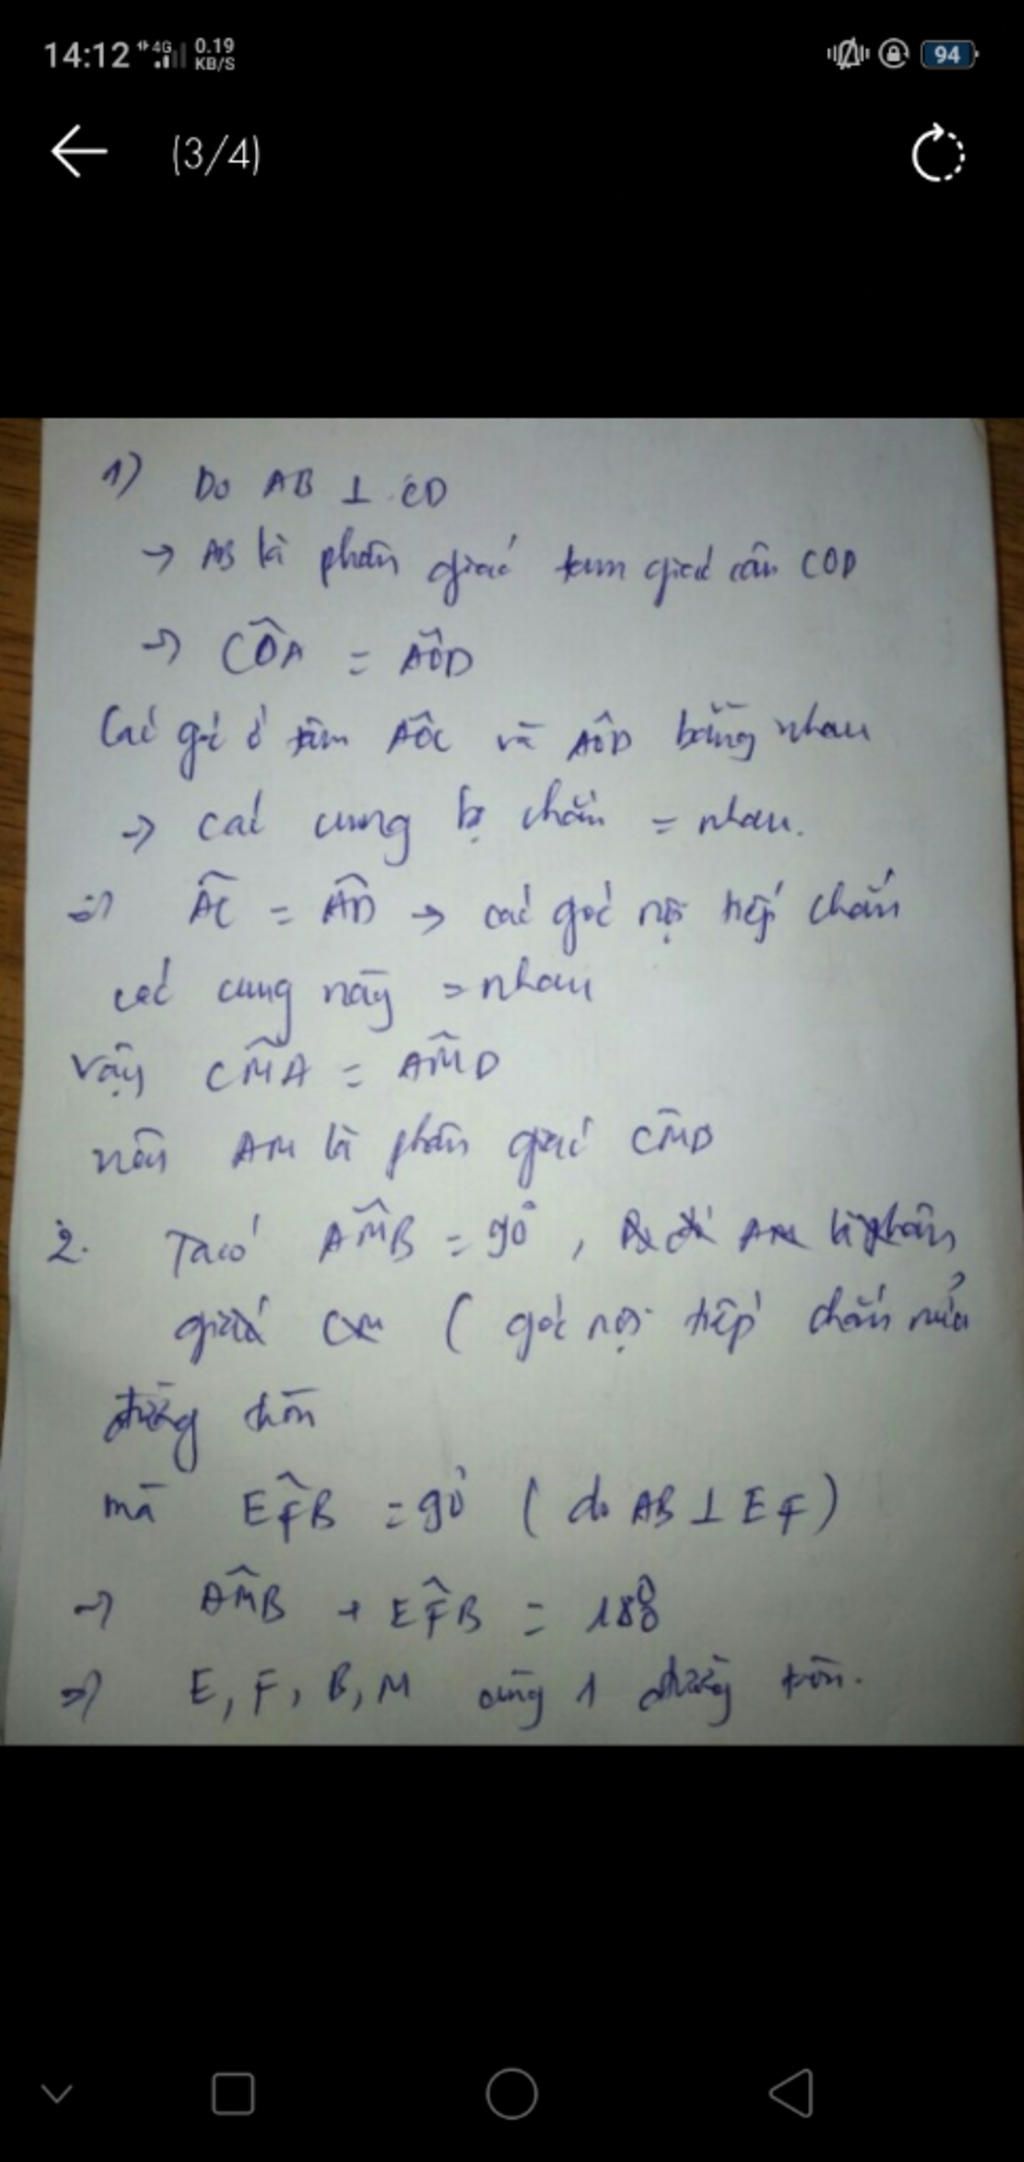 14:12 4G 0.19 KB/S 94
(3/4)
1) Do AB ⊥ CD
→ AB là phân giác tam giác cân COD
→ CÔA = AÔD
Các góc ở tâm AÔC và AÔD bằng nhau
→ các cung bị chắn = nhau.
⇒ AC = AD → các góc nội tiếp chắn
các cung này = nhau
Vậy CM̂A = AM̂D
nên AM là phân giác CM̂D
2. Ta có AM̂B = 90°, AM là phân
giác CM ( góc nội tiếp chắn nửa
đường tròn
mà EF̂B = 90° ( do AB ⊥ EF )
→ AM̂B + EF̂B = 180°
⇒ E, F, B, M cùng 1 đường tròn.